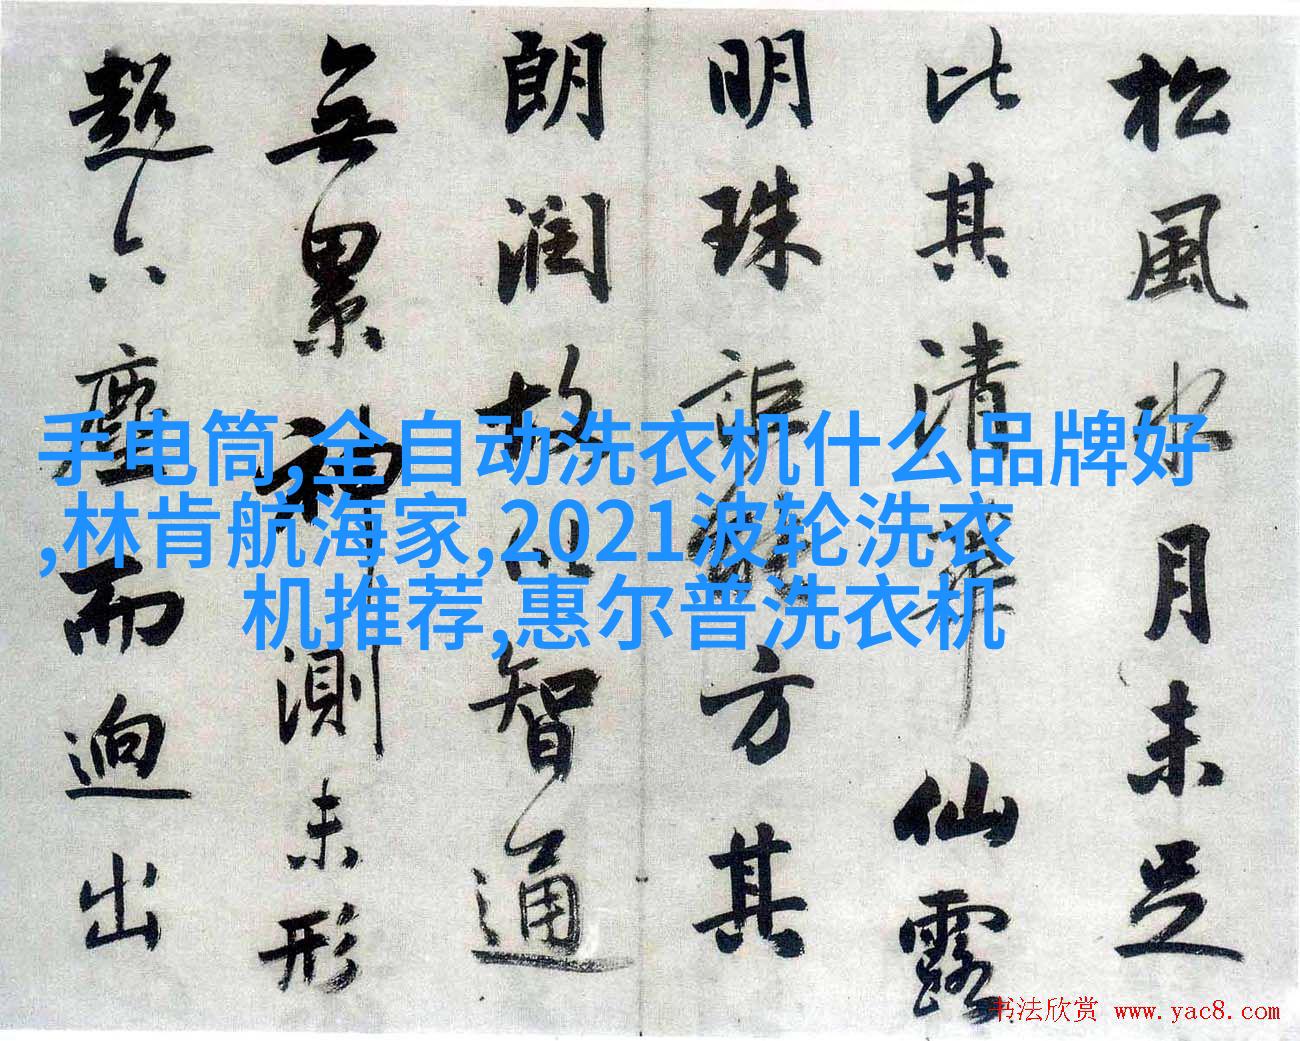 松風水月未足
比其清華仙露
明珠詎能方其
朗潤故以智通
無累神測未形
超六塵而迥出
手电筒,全自动洗衣机什么品牌好
,林肯航海家,2021波轮洗衣
机推荐,惠尔普洗衣机
书法欣赏 www.yac8.com